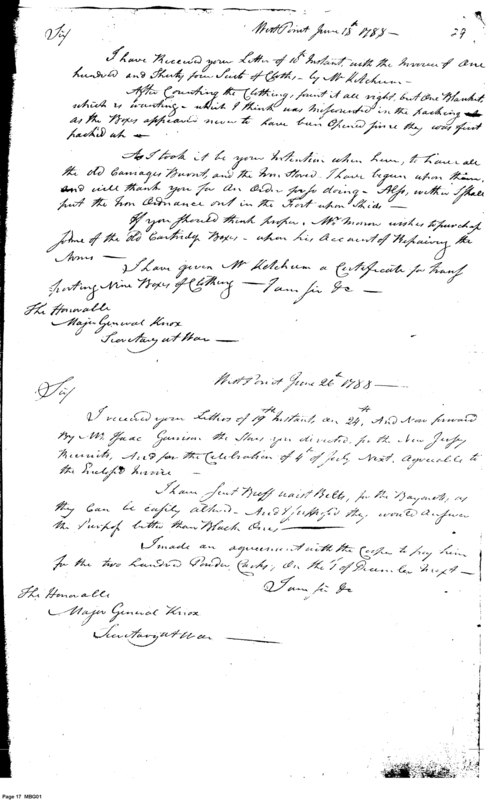 West Point June 13th 1788 —
29
Sir/
I have Received your Letter of 10th Instant with the Invoice of One
hundred and Thirty four Suits of Cloths — by Mr Ketcham —
After Counting the Clothing, found it all right, but One Blanket,
which is wanting — which I think was in the packing
as the Boxes appeared never to have been Opened since they was first
packed up —
As I took it to be your Intention when here, to have all
the old Carriages Burnt, and the Iron Saved. I have begun upon them,
and will thank you for An Order for so doing — Also, wether I shall
put the Iron Ordnance out in the Fort upon Skids —
If you should think proper, Mr wishes to purchase
some of the old Cartridge Boxes — upon his Account of Repairing the
Arms —
I have given Mr Ketcham a Certificate for Trans
porting Nine Boxes of Clothing — I am Sir &c —
The Honorable
Major General Knox
Secretary at War —
West Point June 26th 1788 —
Sir/
I received your Letters of 19th Instant, on 24th, And Now forward
By Mr Isaac Garrison the Stores you directed, for the New Jersey
Recruits, And for the Celebration of 4th of July Next, Agreeable to
the Inclosed Invoice
I have sent Buff waist Belts, for the Bayonets, as
they Can be easily altered — And I they would Answer
the Purpose better than Black Ones —
I made an agreement with the Cooper to pay him
for the two hundred Powder Casks, On the 1st of December Next —
I am Sir &c
The Honorable
Major General Knox
Secretary at War —
Page 17 MBG01